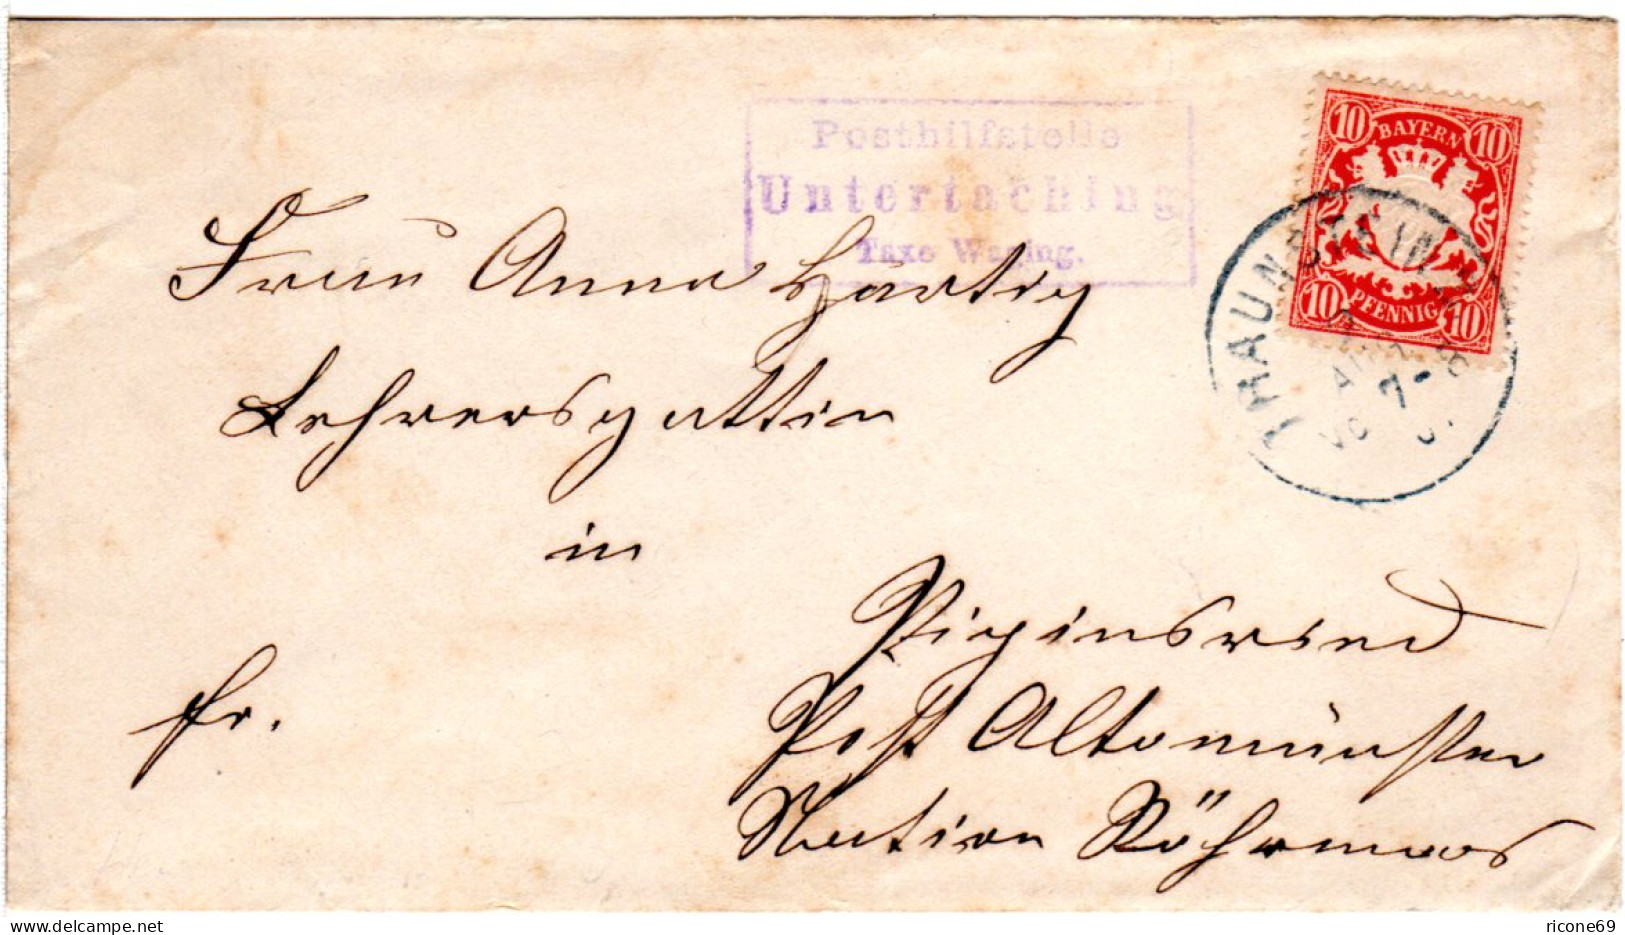 Posthilfstelle
Untertaching
Taxe Waging.
10 BAYERN 10
10 PFENNIG 10
TRAUNSTEIN
7-8
Frau Anna Härtig
Lehrersgattin
in
Pipinsried
fr.
Post Altomünster
Station Röhrmoos
delcampe.net
ricone69